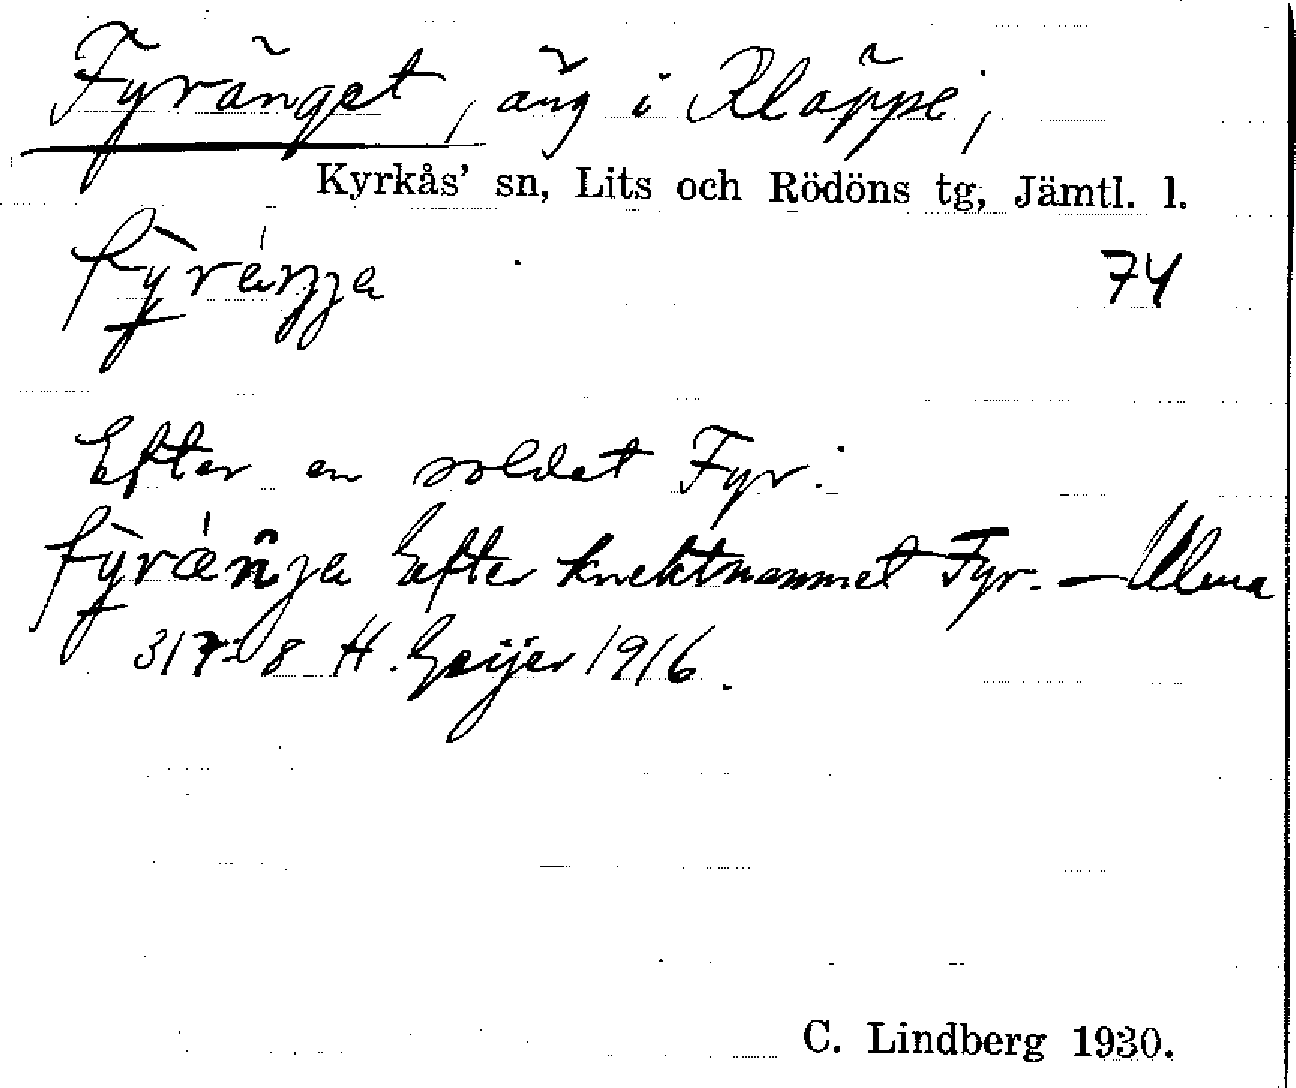 Fyränget, äng i Kläppe,
Kyrkås' sn, Lits och Rödöns tg, Jämtl. l.
74
Efter en soldat Fyr.
Efter knektnamnet Fyr. — Ulma
317:8 H. Geijer 1916.
C. Lindberg 1930.